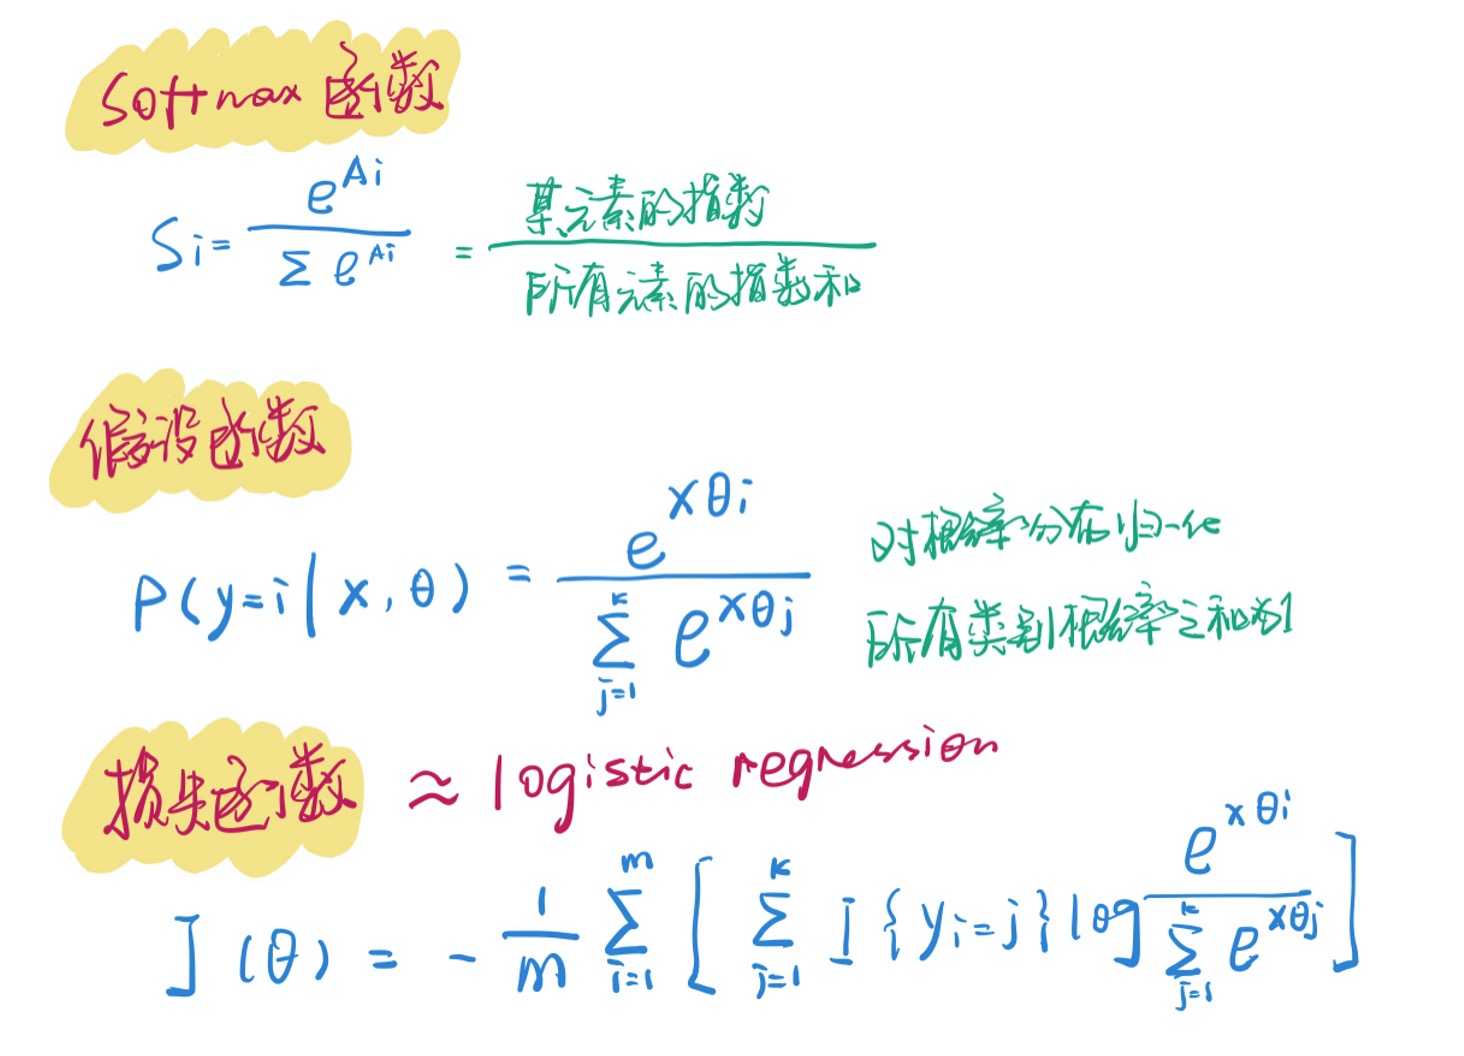 Softmax 函数
Si = e^{Ai} / Σ e^{Ai} = 某元素的指数 / 所有元素的指数和
假设函数
P(y=i | x, θ) = e^{xθi} / Σ_{j=1}^{k} e^{xθj}
对概率分布归一化
所有类别概率之和为1
损失函数 ≈ logistic regression
J(θ) = - 1/m Σ_{i=1}^{m} [ Σ_{j=1}^{k} I{yi=j} log e^{xθi} / Σ_{j=1}^{k} e^{xθj} ]